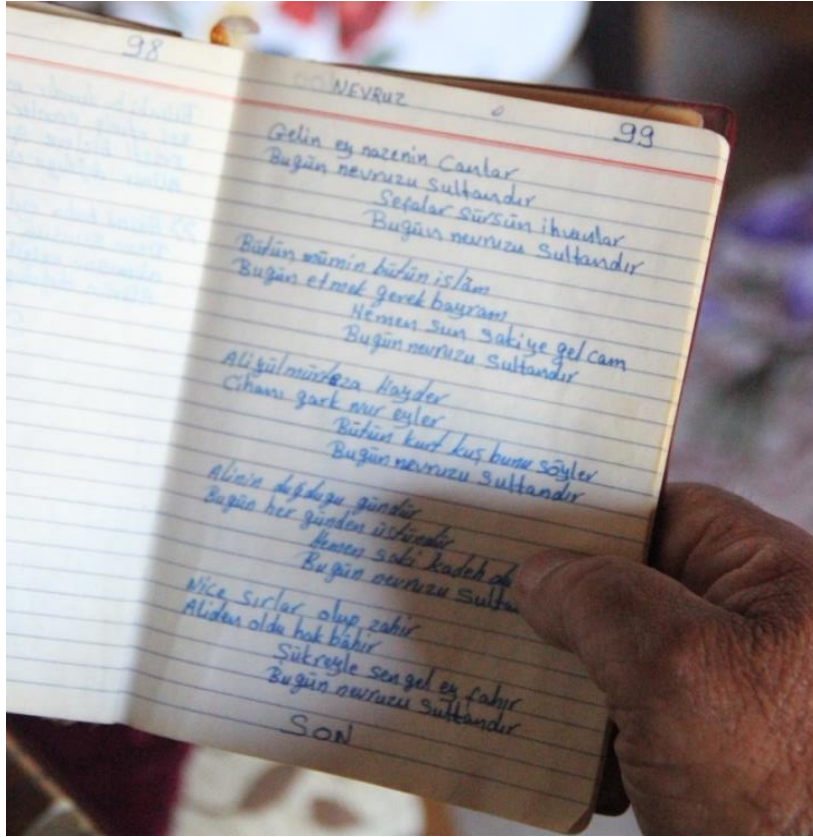 98
NEVRUZ
99
Gelin ey nazenin Canlar
Bugün nevruzu sultandır
Sefalar sürsün ihvanlar
Bugün nevruzu Sultandır
Bütün mümin bütün islâm
Bugün etmek gerek bayram
Hemen sun sakiye gel cam
Bugün nevruzu Sultandır
Ali yül mürteza Hayder
Cihanı gark nur eyler
Bütün kurt kuş bunu söyler
Bugün nevruzu sultandır
Alinin duğdugu gündür
Bugün her günden üstündür
Hemen saki kadeh
Bugün nevruzu
Nice sırlar olup zahir
Aliden oldu hak bâhir
Şükreyle sen gel ey fahır
Bugün nevruzu Sultandır
SON